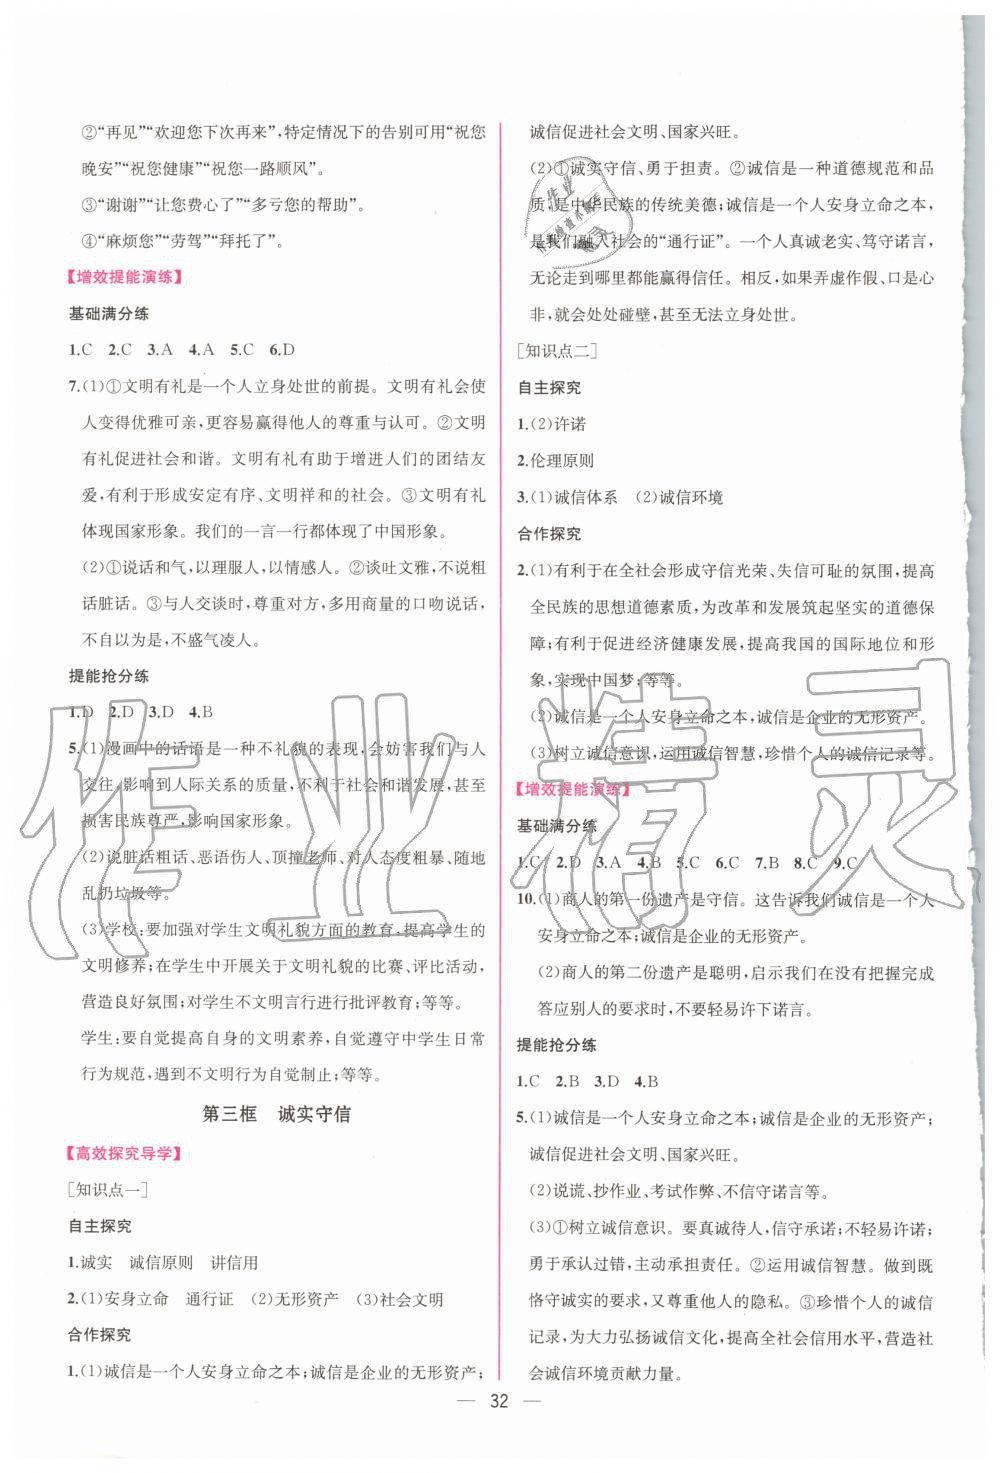 ②“再见”“欢迎您下次再来”,特定情况下的告别可用“祝您
晚安”“祝您健康”“祝您一路顺风”。
③“谢谢”“让您费心了”“多亏您的帮助”。
④“麻烦您”“劳驾”“拜托了”。
【增效提能演练】
基础满分练
1.C 2.C 3.A 4.A 5.C 6.D
7.(1)①文明有礼是一个人立身处世的前提。文明有礼会使
人变得优雅可亲,更容易赢得他人的尊重与认可。②文明
有礼促进社会和谐。文明有礼有助于增进人们的团结友
爱,有利于形成安定有序、文明祥和的社会。③文明有礼
体现国家形象。我们的一言一行都体现了中国形象。
(2)①说话和气,以理服人,以情感人。②谈吐文雅,不说粗
话脏话。③与人交谈时,尊重对方,多用商量的口吻说话,
不自以为是,不盛气凌人。
提能抢分练
1.D 2.D 3.D 4.B
5.(1)漫画中的话语是一种不礼貌的表现,会妨害我们与人
交往,影响到人际关系的质量,不利于社会和谐发展,甚至
损害民族尊严,影响国家形象。
(2)说脏话粗话、恶语伤人、顶撞老师、对人态度粗暴、随地
乱扔垃圾等。
(3)学校:要加强对学生文明礼貌方面的教育,提高学生的
文明修养;在学生中开展关于文明礼貌的比赛、评比活动,
营造良好氛围;对学生不文明言行进行批评教育;等等。
学生:要自觉提高自身的文明素养,自觉遵守中学生日常
行为规范,遇到不文明行为自觉制止;等等。
第三框 诚实守信
【高效探究导学】
[知识点一]
自主探究
1.诚实 诚信原则 讲信用
2.(1)安身立命 通行证 (2)无形资产 (3)社会文明
合作探究
1.(1)诚信是一个人安身立命之本;诚信是企业的无形资产;
诚信促进社会文明、国家兴旺。
(2)①诚实守信、勇于担责。②诚信是一种道德规范和品
质,是中华民族的传统美德;诚信是一个人安身立命之本,
是我们融入社会的“通行证”。一个人真诚老实、笃守诺言,
无论走到哪里都能赢得信任。相反,如果弄虚作假、口是心
非,就会处处碰壁,甚至无法立身处世。
[知识点二]
自主探究
1.(2)许诺
2.伦理原则
3.(1)诚信体系 (2)诚信环境
合作探究
2.(1)有利于在全社会形成守信光荣、失信可耻的氛围,提高
全民族的思想道德素质,为改革和发展筑起坚实的道德保
障;有利于促进经济健康发展,提高我国的国际地位和形
象,实现中国梦;等等。
(2)诚信是一个人安身立命之本,诚信是企业的无形资产。
(3)树立诚信意识,运用诚信智慧,珍惜个人的诚信记录等。
【增效提能演练】
基础满分练
1.C 2.D 3.A 4.B 5.C 6.C 7.B 8.C 9.C
10.(1)商人的第一份遗产是守信。这告诉我们诚信是一个人
安身立命之本;诚信是企业的无形资产。
(2)商人的第二份遗产是聪明,启示我们在没有把握完成
答应别人的要求时,不要轻易许下诺言。
提能抢分练
1.C 2.B 3.D 4.B
5.(1)诚信是一个人安身立命之本;诚信是企业的无形资产;
诚信促进社会文明、国家兴旺。
(2)说谎、抄作业、考试作弊、不信守诺言等。
(3)①树立诚信意识。要真诚待人,信守承诺;不轻易许诺;
勇于承认过错,主动承担责任。②运用诚信智慧。做到既
恪守诚实的要求,又尊重他人的隐私。③珍惜个人的诚信
记录,为大力弘扬诚信文化,提高全社会信用水平,营造社
会诚信环境贡献力量。
— 32 —
作业精灵